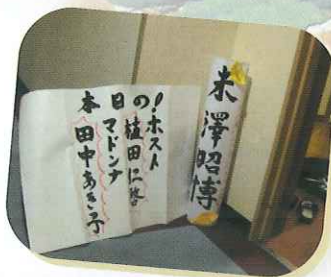 米澤昭博
本日の!
ホスト
植田仁
マドンナ
田中あき子